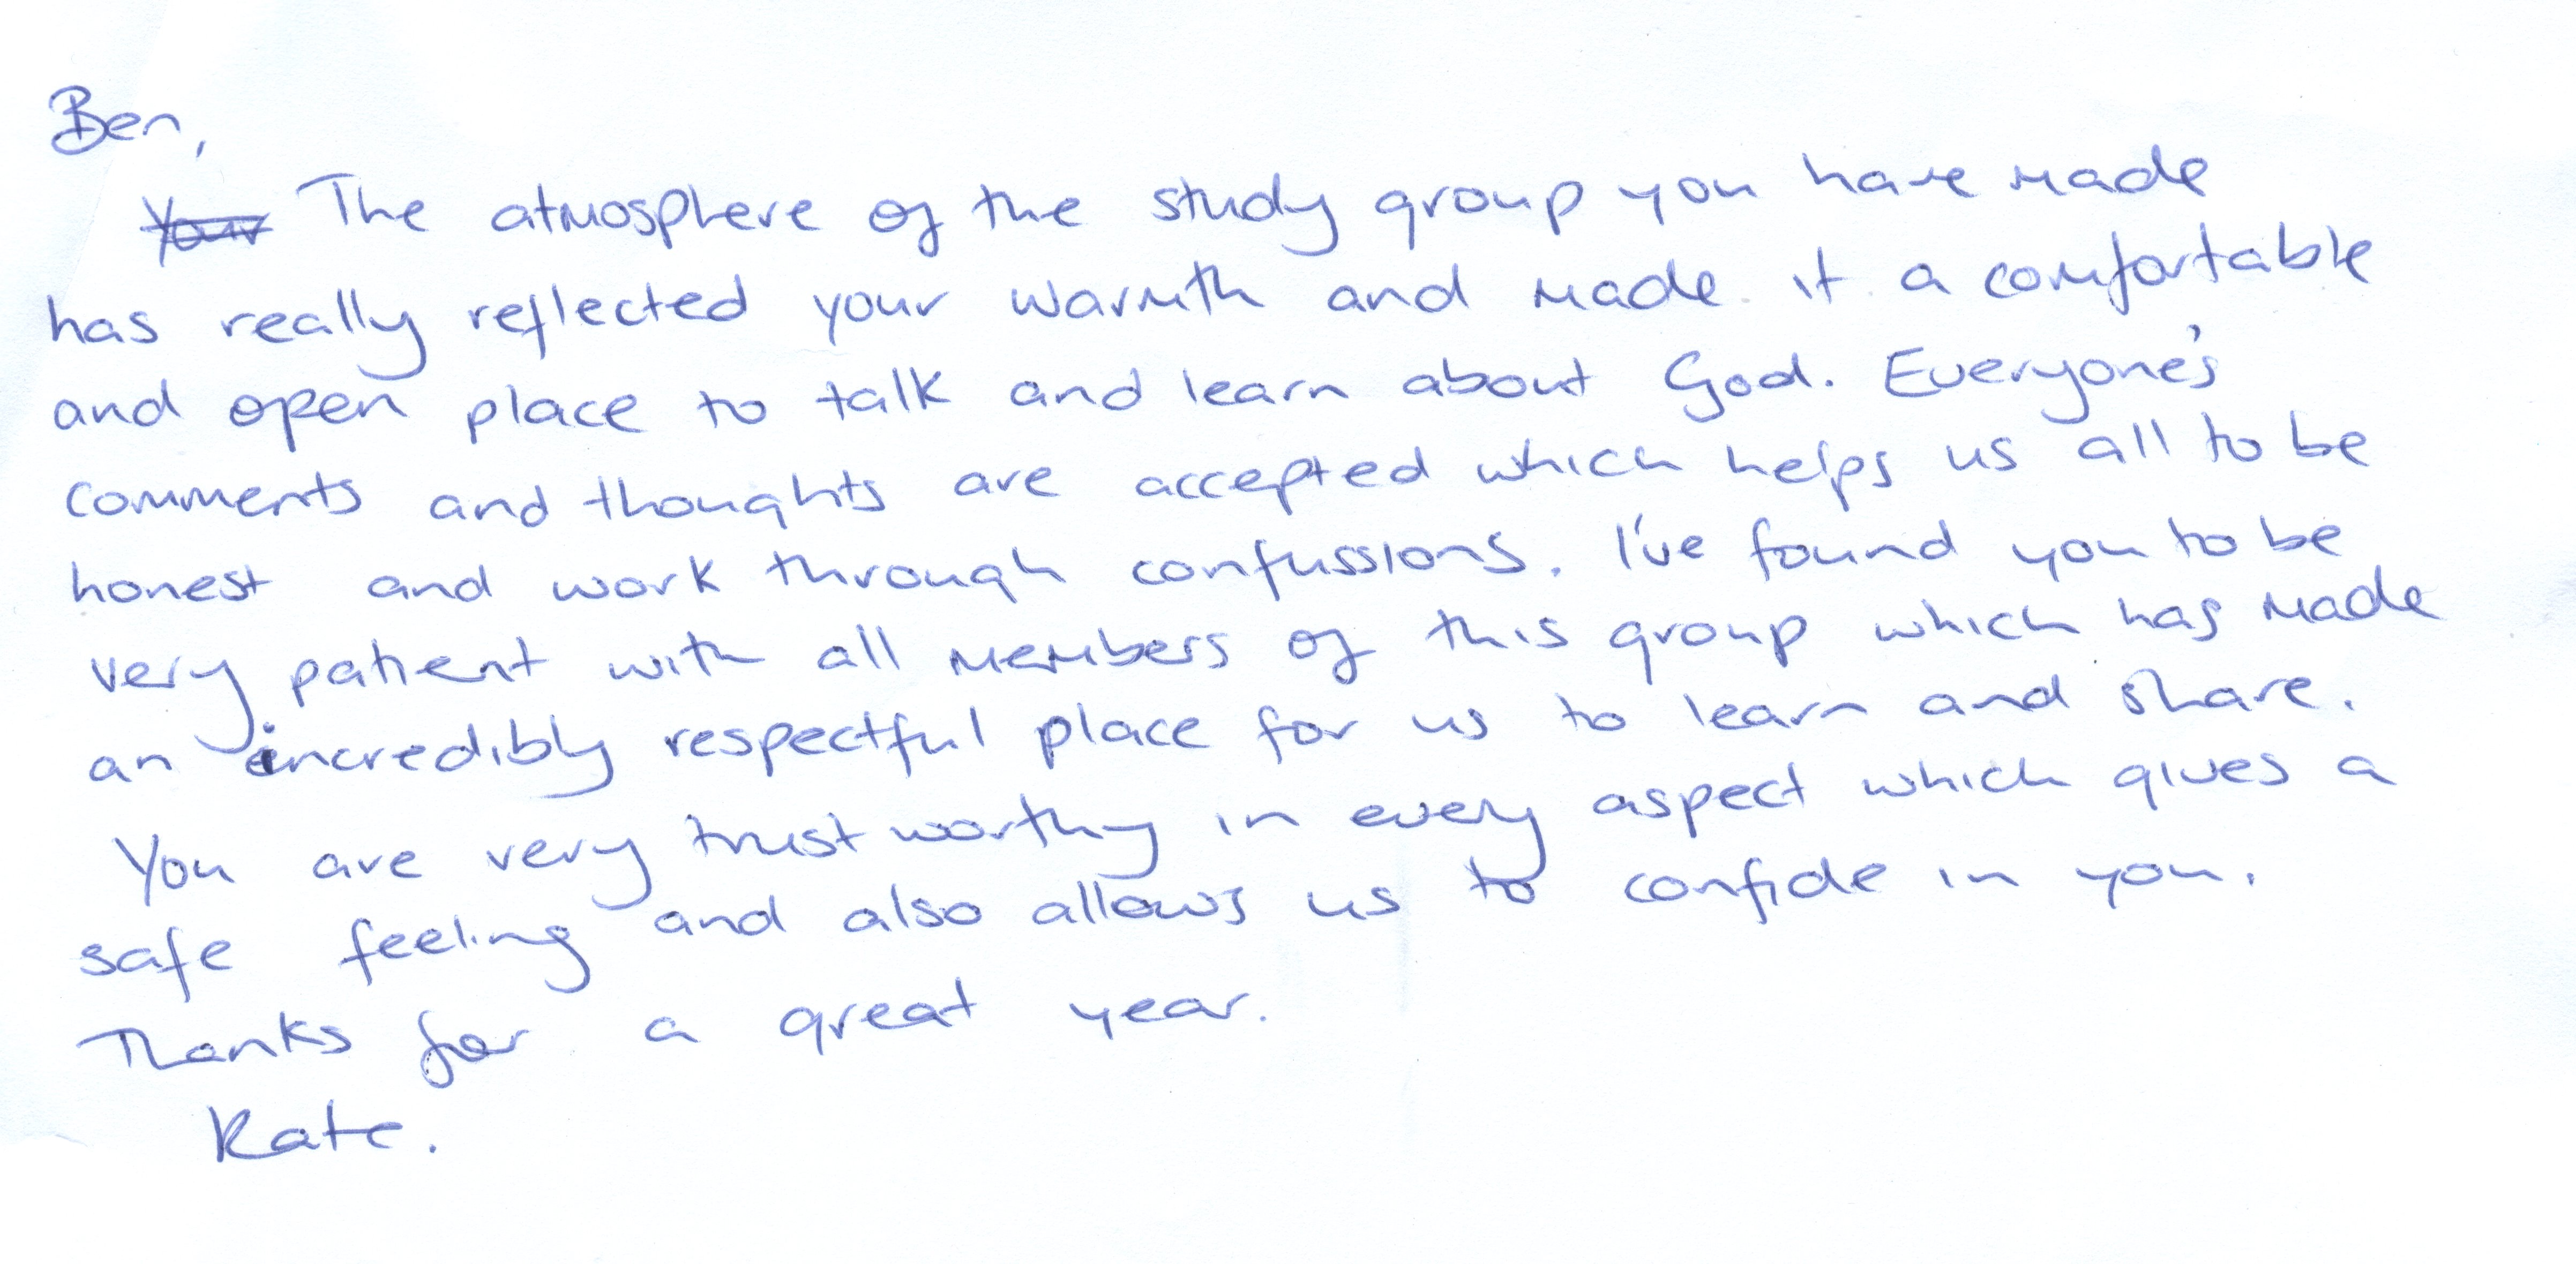 Ben,
Your The atmosphere of the study group you have made
has really reflected your warmth and made it a comfortable
and open place to talk and learn about God. Everyone's
comments and thoughts are accepted which helps us all to be
honest and work through confussions. I've found you to be
very patient with all members of this group which has made
an incredibly respectful place for us to learn and share.
You are very trustworthy in every aspect which gives a
safe feeling and also allows us to confide in you.
Thanks for a great year.
Kate.